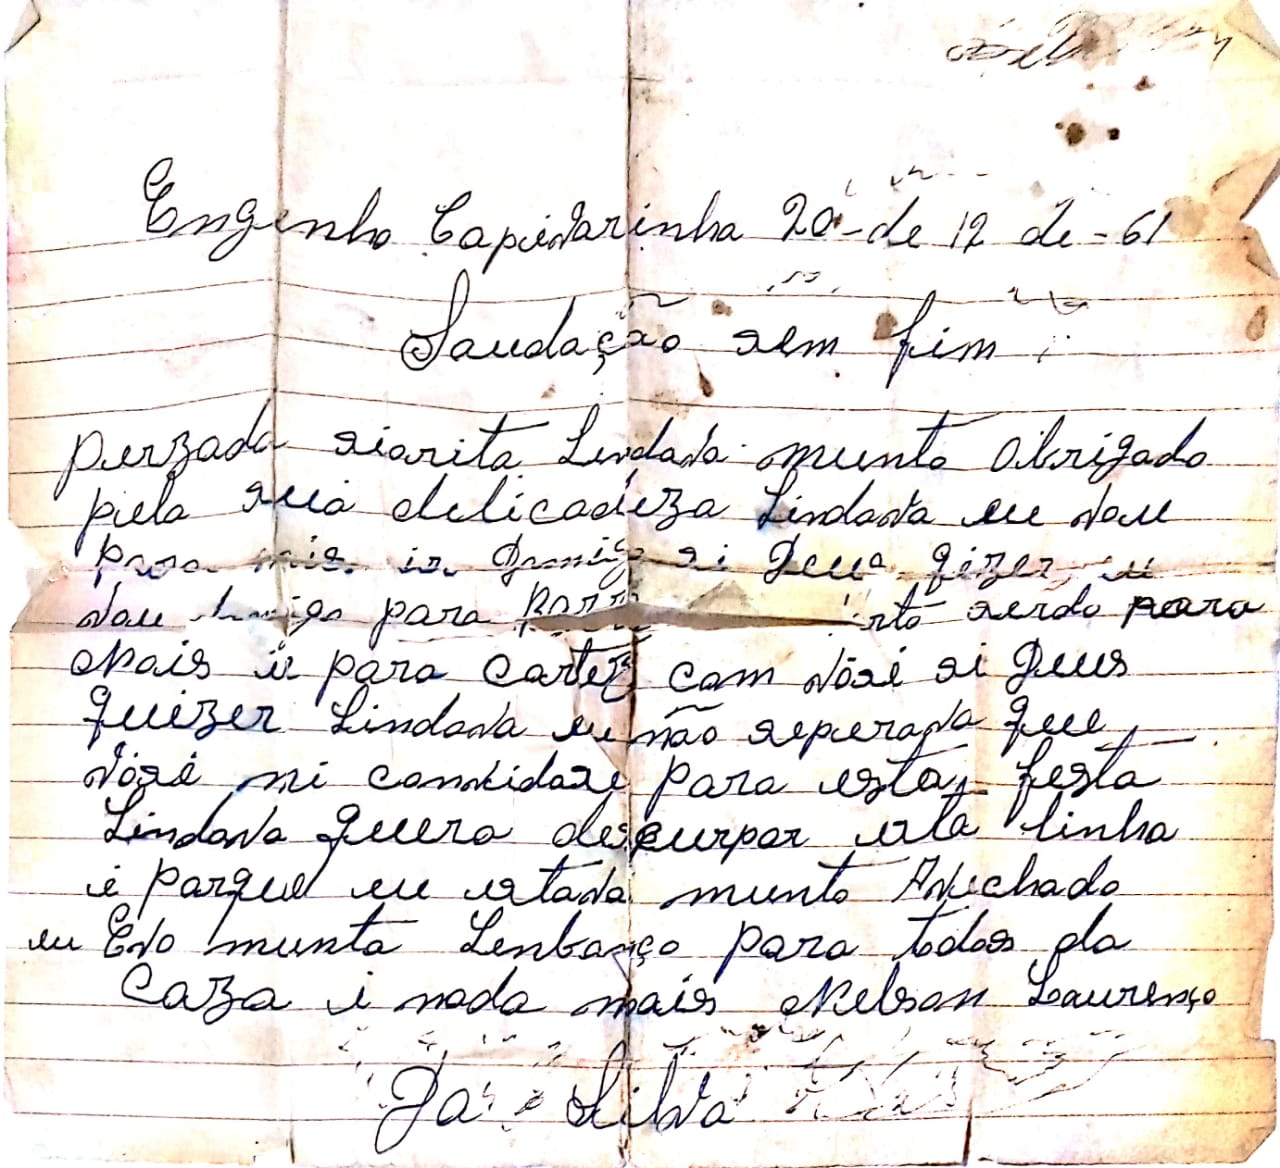 Engenho Capivarinha 20-de 12 de-61
Saudação sem fim
perzada siorita Lindava munto obrigado
pela sua delicadeza Lindava eu vou
para mis. ir Domigo si Deus qizer eu
vou para
Nais é para com vósé si Deus
quizer Lindava eu não seperava que
vósé mi convidase para esta festa
Lindava quero descurpar esta linha
é parque eu estava munto Avechado
eu Evo munta Lenbanço para todos da
Caza i nada mais Nelson Laurenço
Da Silva